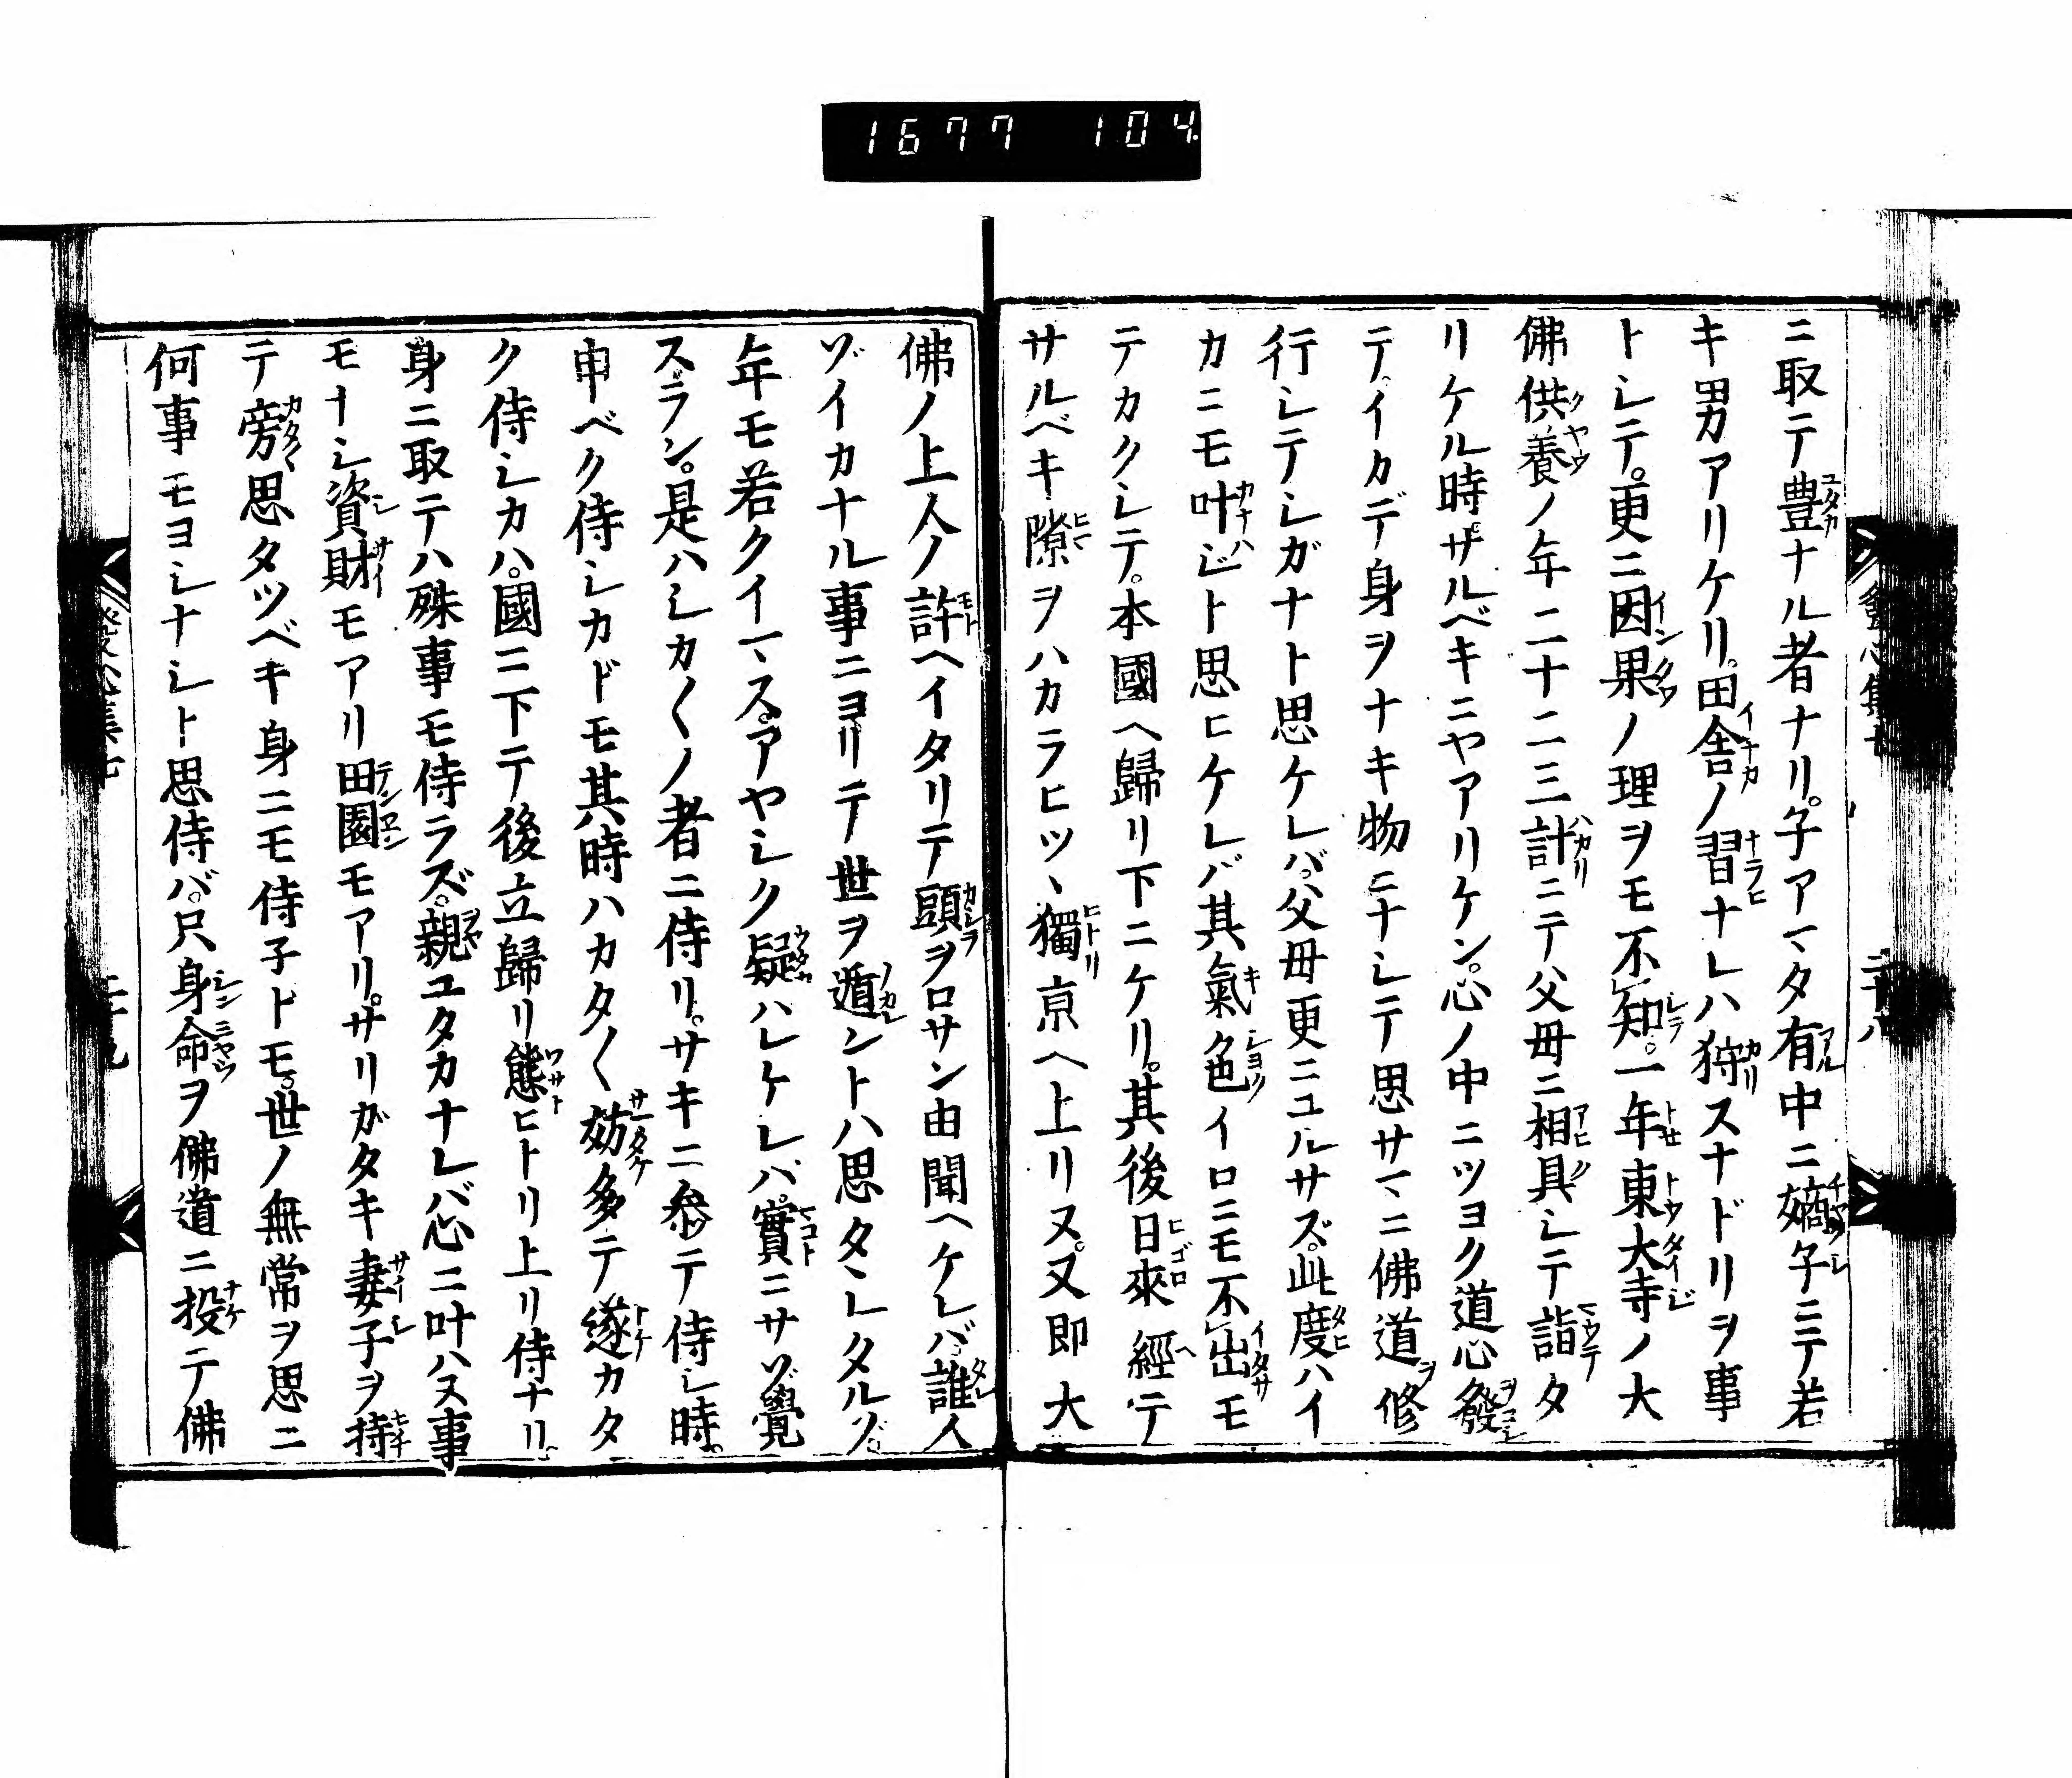 1677 104
ニ取テ豊ナル者ナリ。子アマタ有中ニ嫡子ニテ若
キ男アリケリ。田舎ノ習ナレハ狩スナドリヲ事
トシテ。更ニ因果ノ理ヲモ不知。一年東大寺ノ大
佛供養ノ年二十二三計ニテ父母ニ相具シテ詣タ
リケル時サルベキニヤアリケン。心ノ中ニツヨク道心發
テイカデ身ヲナキ物ニナシテ思サマニ佛道修
行シテシガナト思ケレバ。父母更ニユルサズ。此度ハイ
カニモ叶ジト思ヒケレバ其氣色イロニモ不出モ
テカクシテ。本國ヘ歸リ下ニケリ。其後日來經テ
サルベキ隙ヲハカラヒツヽ獨京ヘ上リヌ。又即大
佛ノ上人ノ許ヘイタリテ頭ヲロサン由聞ヘケレバ誰人
ゾイカナル事ニヨリテ世ヲ遁ントハ思タヽレタルゾ。
年モ若クイマス。アヤシク疑ハレケレバ。實ニサゾ覺
スラン。是ハシカ〱ノ者ニ侍リ。サキニ參テ侍シ時。
申ベク侍シカドモ其時ハカタ〱妨多テ遂カタ
ク侍シカハ。國ニ下テ後立歸リ態ヒトリ上リ侍ナリ。
身ニ取テハ殊事モ侍ラズ。親ユタカナレバ心ニ叶ハヌ事
モナシ資財モアリ田園モアリ。サリガタキ妻子ヲ持
テ旁思タツベキ身ニモ侍子ドモ。世ノ無常ヲ思ニ
何事モヨシナシト思侍バ。只身命ヲ佛道ニ投テ佛